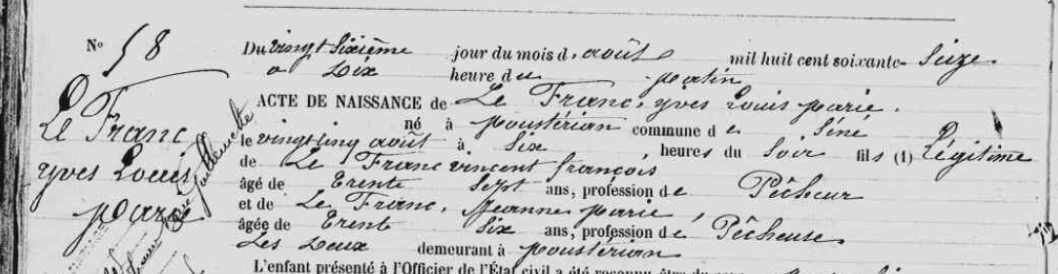 N° 58
Le Franc
yves Louis
marie
Du vingt sixième jour du mois d. août mil huit cent soixante-seize.
a Dix heure du matin
ACTE DE NAISSANCE de Le Franc, yves Louis marie.
né à moustérian commune d e Séné
le vingt cinq août à Six heures du Soir fils (1) Légitime
de Le Franc vincent françois
âgé de trente Sept ans, profession de Pêcheur
et de Le Franc, Jeanne marie,
âgée de trente Six ans, profession de Pêcheuse
Les Deux demeurant à moustérian
L'enfant présenté à l'Officier de l'État civil a été reconnu être du sexe